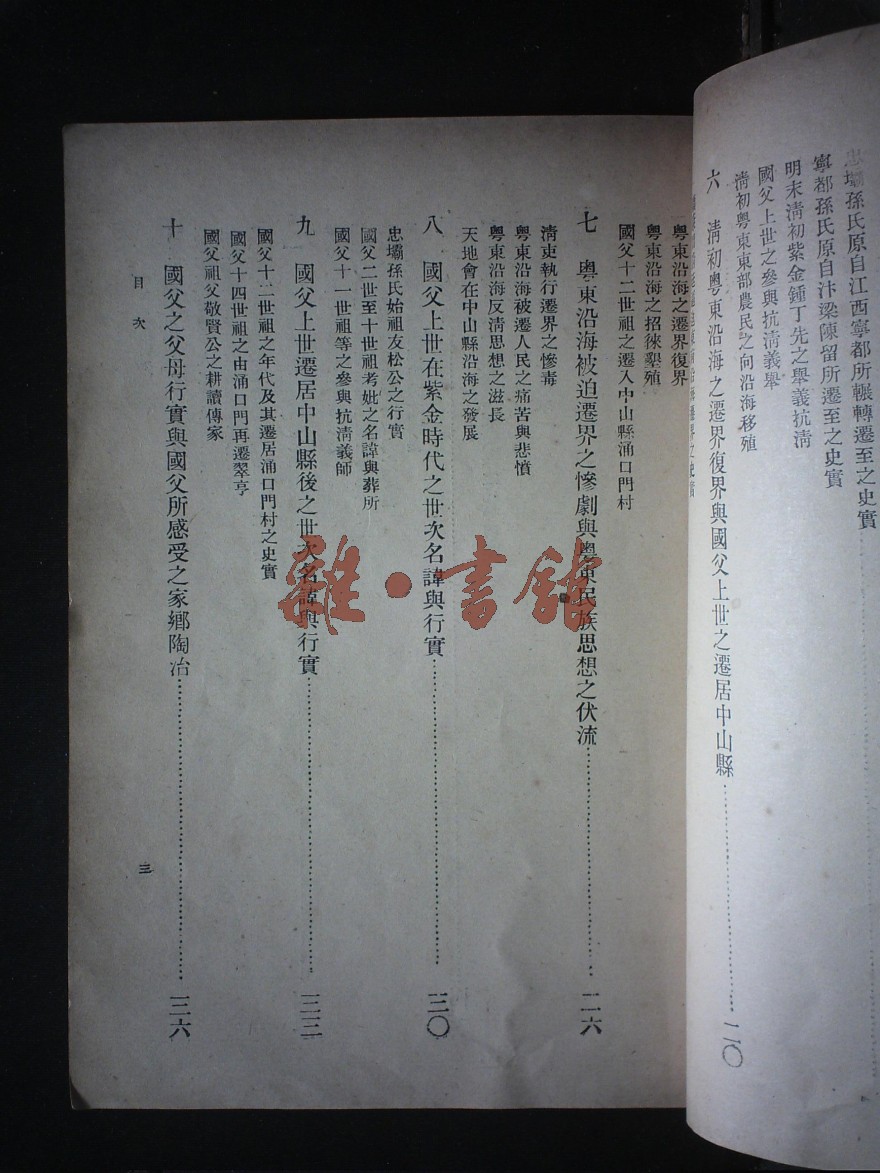 忠壩孫氏原自江西寧都所輾轉遷至之史實
寧都孫氏原自汴梁陳留所遷至之史實
明末清初紫金鍾丁先之舉義抗清
國父上世之參與抗清義舉
清初粵東東部農民之向沿海移殖
六 清初粵東沿海之遷界復界與國父上世之遷居中山縣 二〇
粵東沿海之遷界復界
粵東沿海之招徠墾殖
國父十二世祖之遷入中山縣涌口門村
七 粵東沿海被迫遷界之慘劇與粵東民族思想之伏流 二六
清吏執行遷界之慘毒
粵東沿海被遷人民之痛苦與悲憤
粵東沿海反清思想之滋長
天地會在中山縣沿海之發展
八 國父上世在紫金時代之世次名諱與行實 三〇
忠壩孫氏始祖友松公之行實
國父二世至十世祖考妣之名諱與葬所
國父十一世祖等之參與抗清義師
九 國父上世遷居中山縣後之世次名諱與行實 三三
國父十二世祖之年代及其遷居涌口門村之史實
國父十四世祖之由涌口門再遷翠亨
國父祖父敬賢公之耕讀傳家
十 國父之父母行實與國父所感受之家鄉陶冶 三六
目次
三
雜·書館